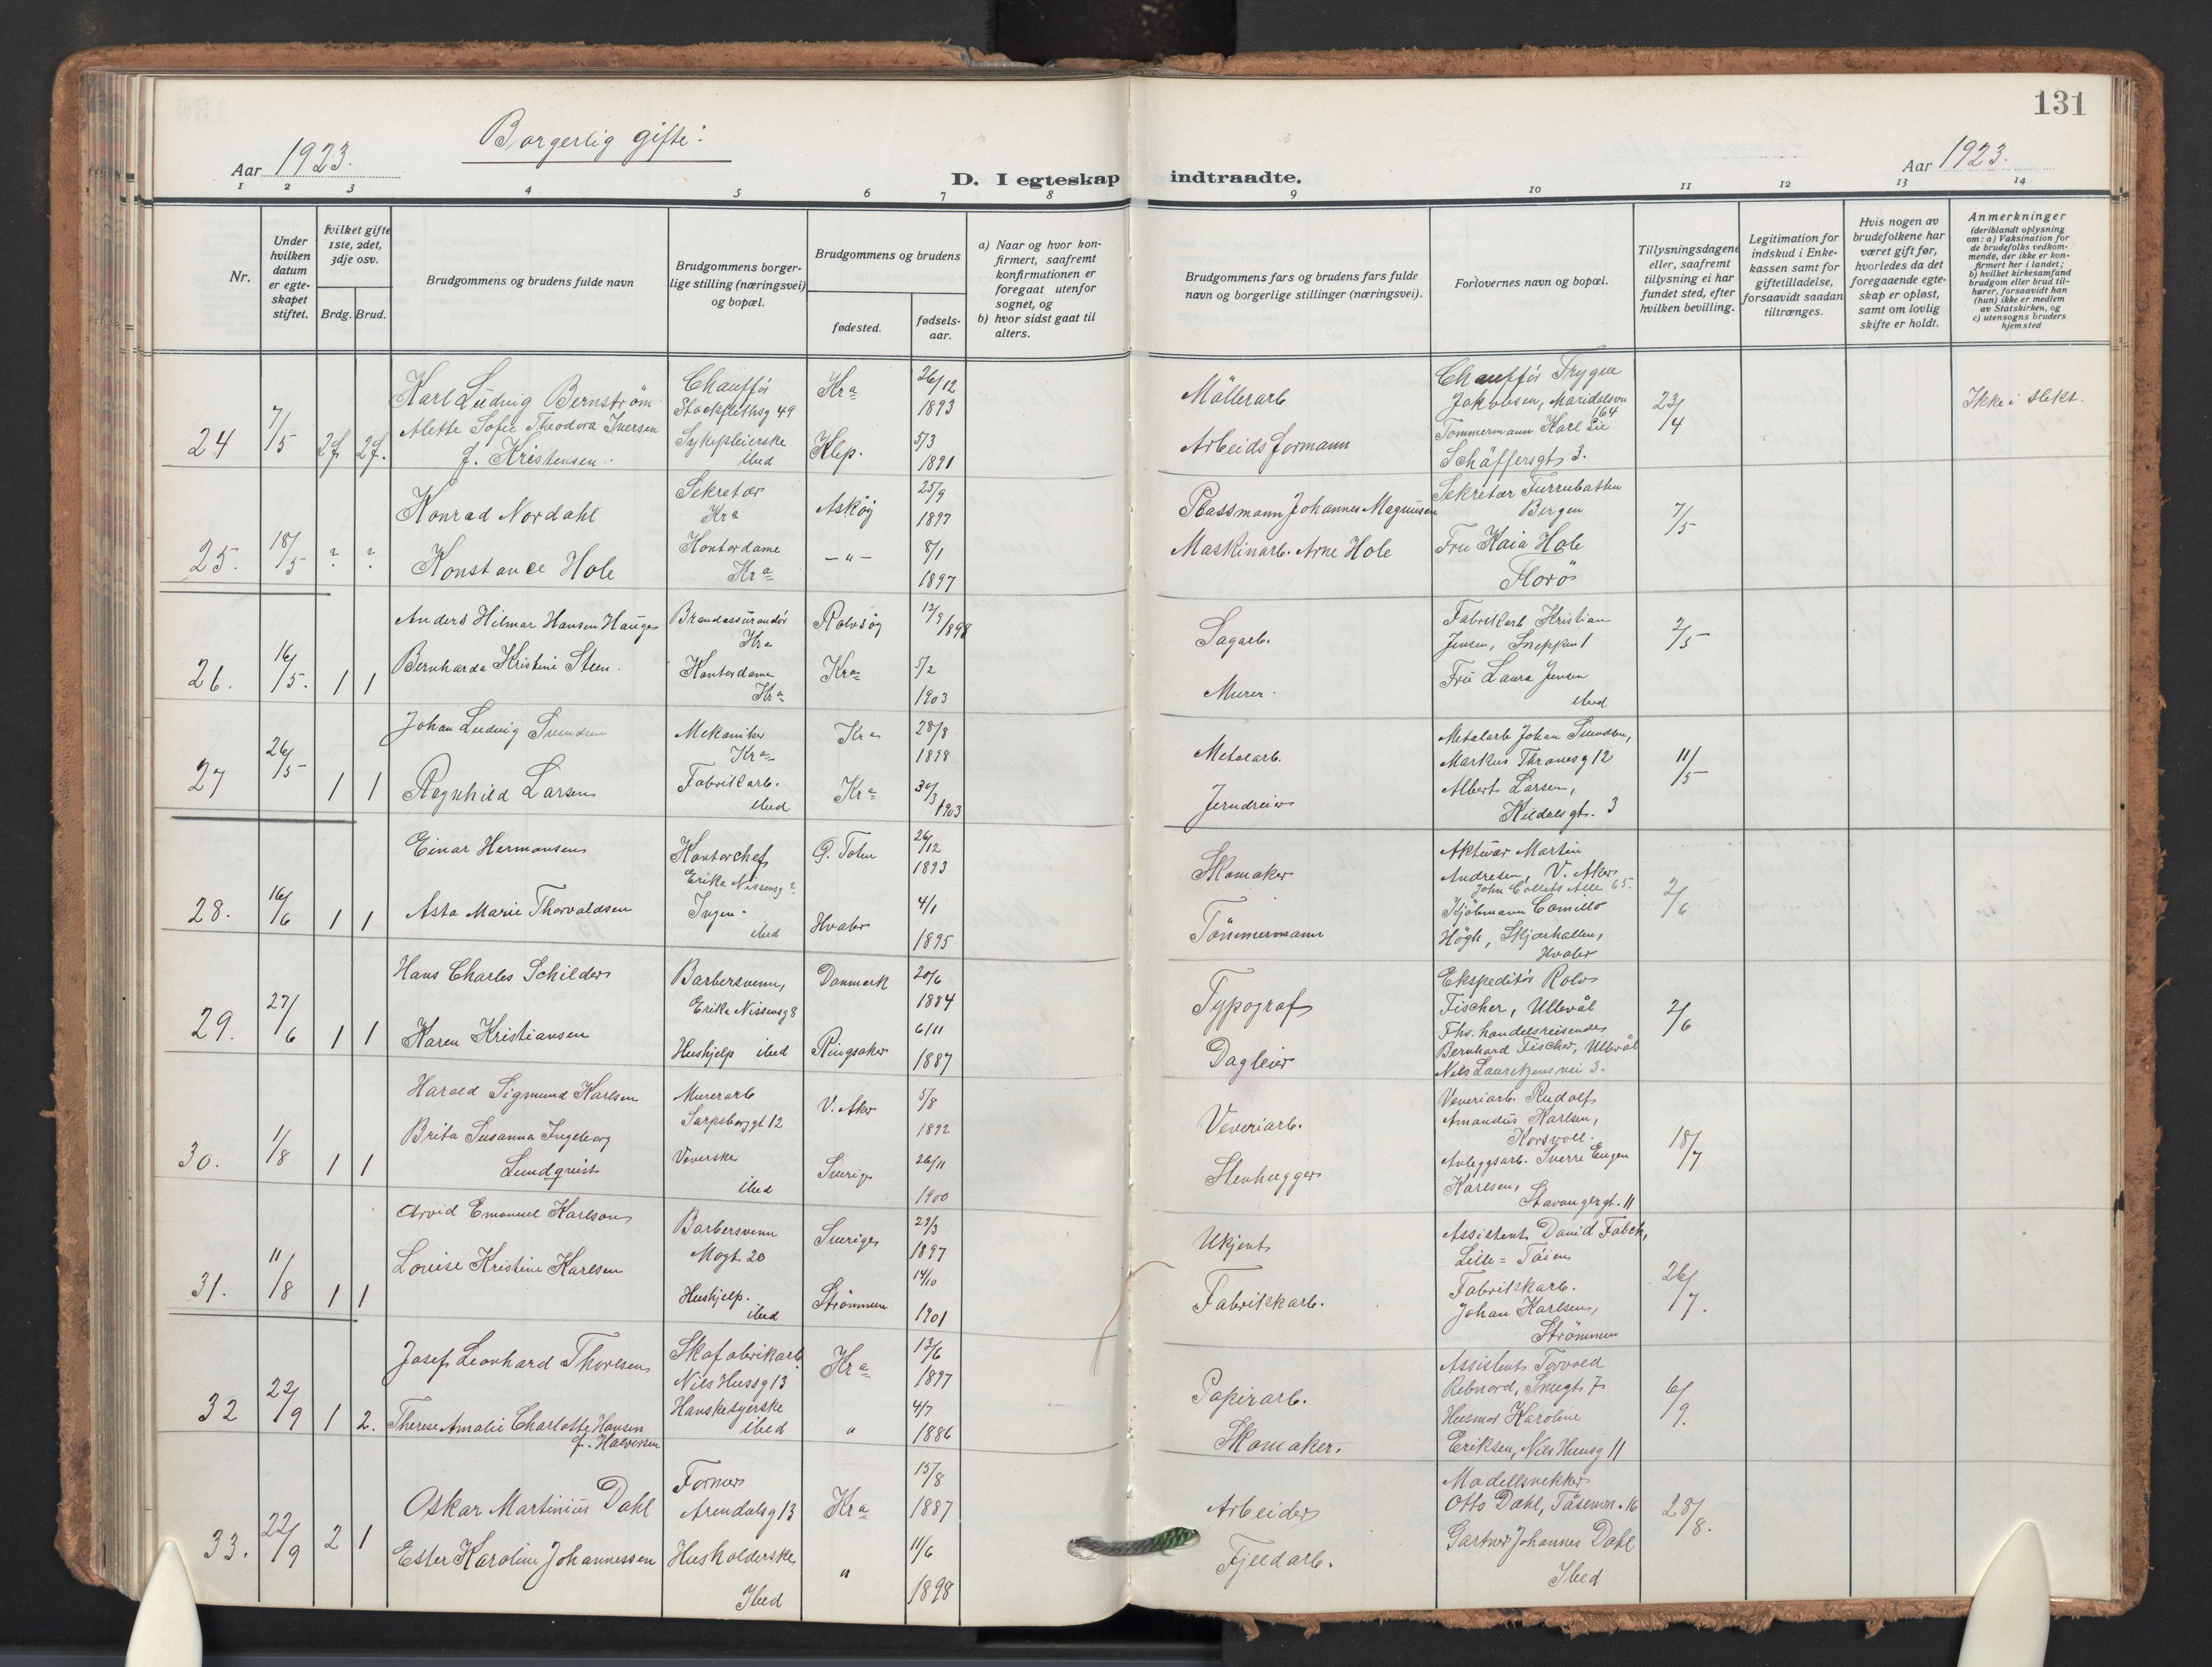 131
Borgerlig gifte:
Aar 1923.
D. I egteskap indtraadte.
Aar 1923.
1 2 3 4 5 6 7 8 9 10 11 12 13 14
Nr.
Under hvilken datum er egteskapet stiftet.
Hvilket gifte 1ste, 2det, 3dje osv.
Brdg. Brud.
Brudgommens og brudens fulde navn
Brudgommens borgerlige stilling (næringsvei) og bopæl.
Brudgommens og brudens
fødested.
fødselsaar.
a) Naar og hvor konfirmert, saafremt konfirmationen er foregaat utenfor sognet, og
b) hvor sidst gaat til alters.
Brudgommens fars og brudens fars fulde navn og borgerlige stillinger (næringsvei).
Forlovernes navn og bopæl.
Tillysningsdagene eller, saafremt tillysning ei har fundet sted, efter hvilken bevilling.
Legitimation for indskud i Enkekassen samt for giftetilladelse, forsaavidt saadan tiltrænges.
Hvis nogen av brudefolkene har været gift før, hvorledes da det foregaaende egteskap er opløst, samt om lovlig skifte er holdt.
Anmerkninger (deriblandt oplysning om: a) Vaksination for de brudefolks vedkommende, der ikke er konfirmert her i landet; b) hvilket kirkesamfund brudgom eller brud tilhører, forsaavidt han (hun) ikke er medlem av Statskirken, og c) utensogns bruders hjemsted
24 7/5 2f 2f.
Karl Ludvig Bernström
Alette Sofie Theodora Iversen
f. Kristensen.
Chauffør
Stockflethsg 49
Sykepleierske
ibid
Kra 26/12 1893
Klep. 5/3 1891
Möllerarb
Arbeidsformann
Chauffør Trygve
Jakobsen, Maridalsvn
164
Tømmermann Karl Lie
Schäffersgt 3.
23/4
Ikke i slekt.
25. 18/5 ? ?
Konrad Nordahl
Konstance Hole
Sekretær
Kra
Kontordame
Kra
Askøy 25/9 1897
—"— 8/1 1897
Plassmann Johannes Magnusen
Maskinarb. Arne Hole
Sekretær Furubotten
Bergen
Fru Kaia Hole
Florö
7/5
26. 16/5. 1 1
Anders Hilmar Hansen Hauge
Bernharda Kristine Steen.
Brandassurandør
Kra
Kontordame
Kra
Rolvsøy 12/9 1898
Kra 5/2 1903
Sagarb.
Murer.
Fabrikarb Kristian
Jensen, Sneppen 1
Fru Laura Jensen
ibid
2/5
27 26/5 1 1
Johan Ludvig Svendsen
Ragnhild Larsen
Mekaniker
Kra
Fabrikarb.
ibid
Kra 28/8 1898
Kra 30/3 1903
Metalarb.
Jerndreier
Metalarb Johan Svendsen,
Markus Thranesg 12
Albert Larsen,
Kildalsgt. 3
11/5
28. 16/6 1 1
Einar Hermansen
Asta Marie Thorvaldsen
Kontorchef
Erika Nissensg ?
Ingen.
ibid
Ø. Toten 26/12 1893
Hvaler 4/1 1895
Skomaker
Tömmermann
Aktuar Martin
Andresen, V. Aker
John Colletts Alle 65.
Kjöbmann Camillo
Högh, Skjærhallen,
Hvaler
2/6
29. 27/6 1 1
Hans Charles Schilder
Karen Kristiansen
Barbersvenn,
Erika Nissensg 8
Hushjelp ibid
Danmark 20/6 1884
Ringsaker 6/11 1887
Typograf
Dagleier
Ekspeditør Rolv
Fischer, Ullevål
Fhv. handelsreisende
Bernhard Fischer, Ullevål
Nils Lauritzens vei 3.
2/6
30. 1/8 1 1
Harald Sigmund Karlsen
Brita Susanna Ingeborg
Lundqvist
Murerarb
Sarpsborggt 12
Veverske
ibid
V. Aker 5/8 1892
Sverige 26/11 1900
Veveriarb.
Stenhugger
Veveriarb. Rudolf
Amandus Karlsen,
Korsvoll.
Anleggsarb. Sverre Eugen
Karlsen,
Stavangergt. 11
18/7
31. 11/8 1 1
Arvid Emanuel Karlson
Louise Kristine Karlsen
Barbersvenn
Mogt 20
Hushjelp.
ibid
Sverige 29/3 1897
Strömmen 14/10 1901
Ukjent
Fabrikkarb.
Assistent David Falck,
Lille-Töien
Fabrikkarb.
Johan Karlsen,
Strömmen
26/7.
32 22/9 1 2.
Josef Leonhard Thorsen
Therese Amalie Charlotte Hansen
f. Halvorsen
Skofabrikarb
Nils Husg 13
Hanskesyerske
ibid
Kra 13/6 1897
" 4/7 1886
Papirarb.
Skomaker.
Assistent Torvald
Rebnord, Smegt 7
Husmor Karoline
Eriksen, Nils Huusg 11
6/9.
33. 22/9 2 1
Oskar Martinius Dahl
Ester Karoline Johannessen
Former
Arendalsg 13
Husholderske
Ibid
Kra 15/8 1887
" 11/6 1898
Arbeider
Fjeldarb.
Modellsnekker
Otto Dahl, Tåsenvn. 16
Gartner Johannes Dahl
Ibid
28/8.